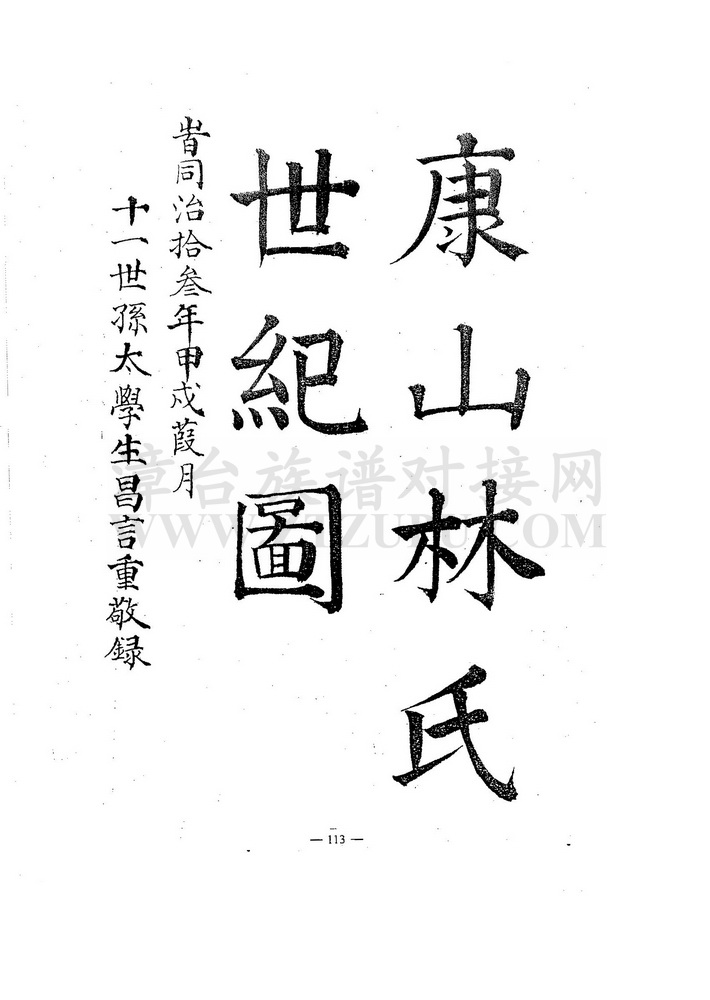 康山林氏
世紀圖
旹同治拾叁年甲戌葭月
十一世孫太學生昌言重敬録
漳台族谱对接网
— 113 —